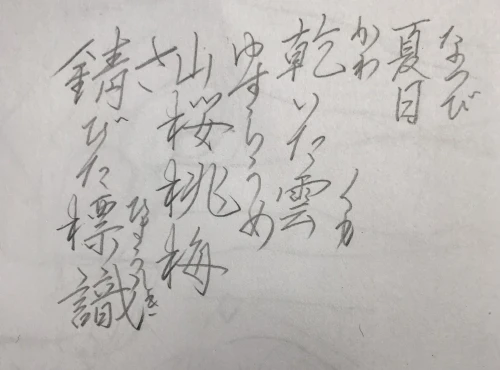 なつび
夏日
かわ くも
乾いた雲
ゆすらうめ
山桜桃梅
さ ひょうしき
錆びた標識